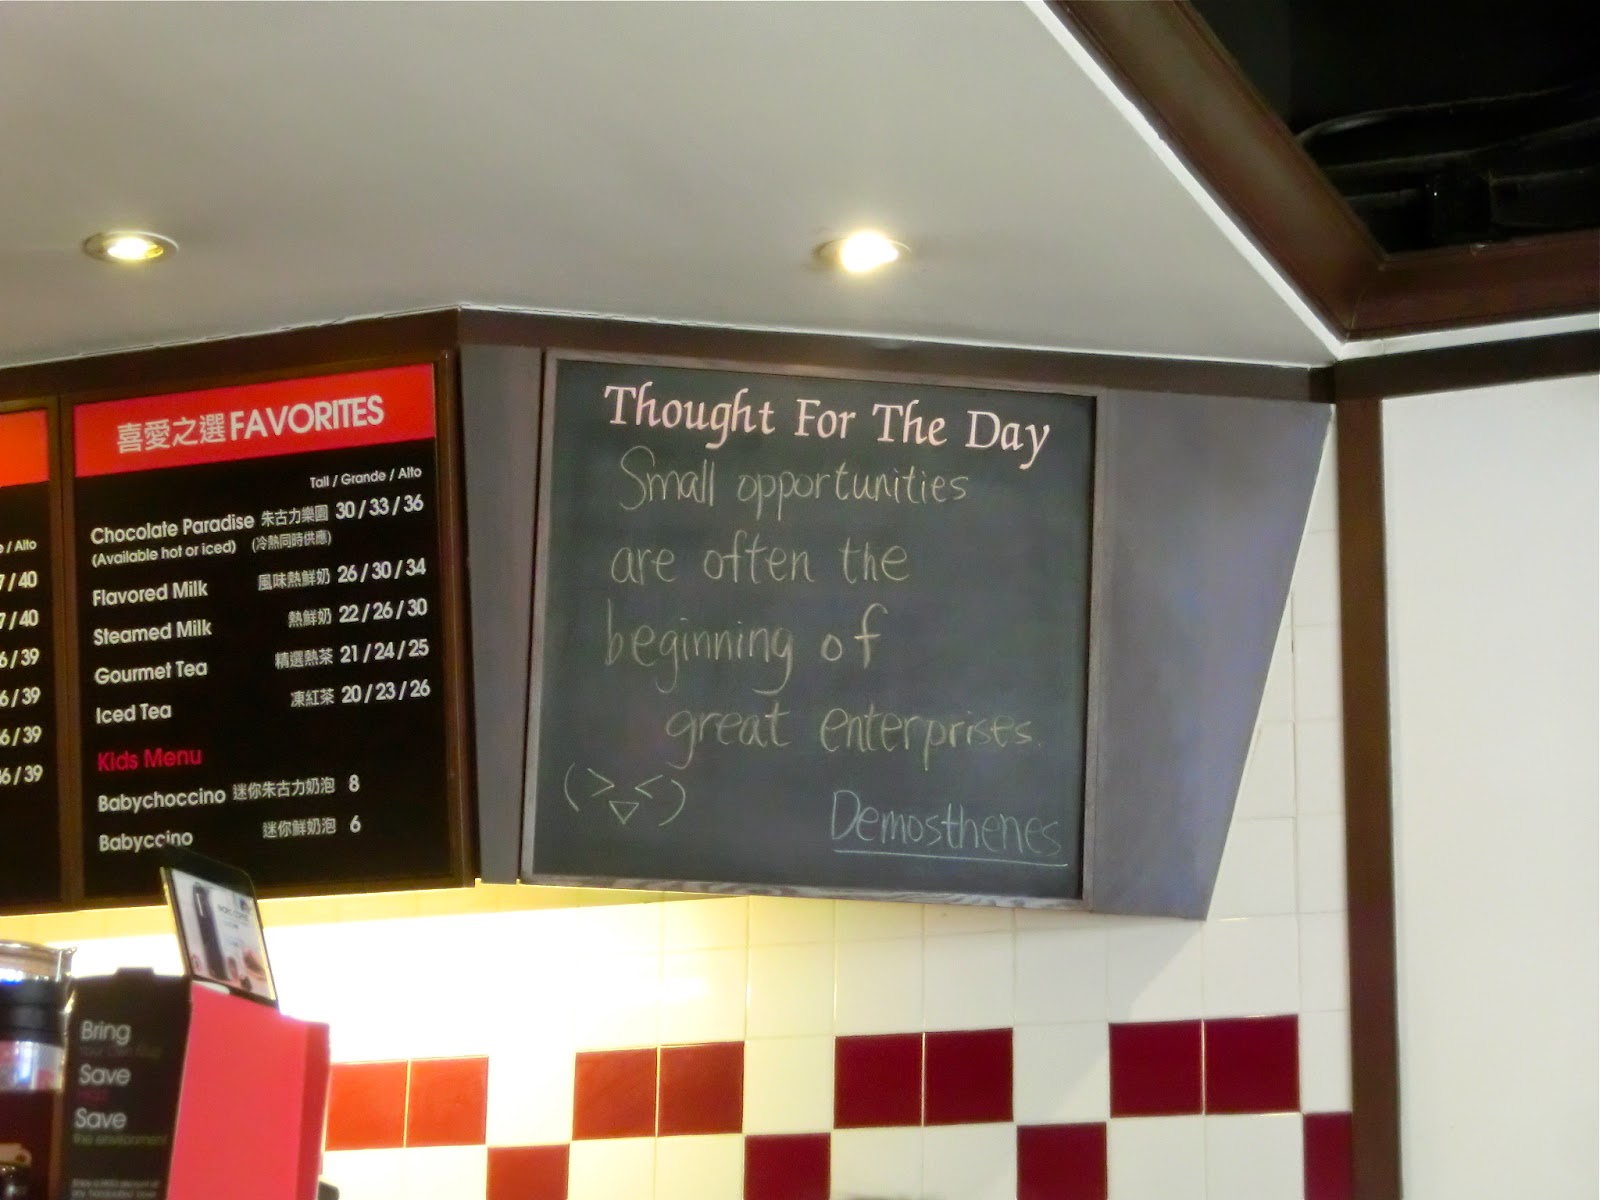 / Alto
7 / 40
7 / 40
6 / 39
6 / 39
6 / 39
6 / 39
喜愛之選 FAVORITES
Tall / Grande / Alto
Chocolate Paradise 朱古力樂園 30 / 33 / 36
(Available hot or iced) (冷熱同時供應)
Flavored Milk 風味熱鮮奶 26 / 30 / 34
Steamed Milk 熱鮮奶 22 / 26 / 30
Gourmet Tea 精選熱茶 21 / 24 / 25
Iced Tea 凍紅茶 20 / 23 / 26
Kids Menu
Babychoccino 迷你朱古力奶泡 8
Babyccino 迷你鮮奶泡 6
Thought For The Day
Small opportunities
are often the
beginning of
great enterprises.
(>▽<)
Demosthenes
Bring
Save
Save
the environment